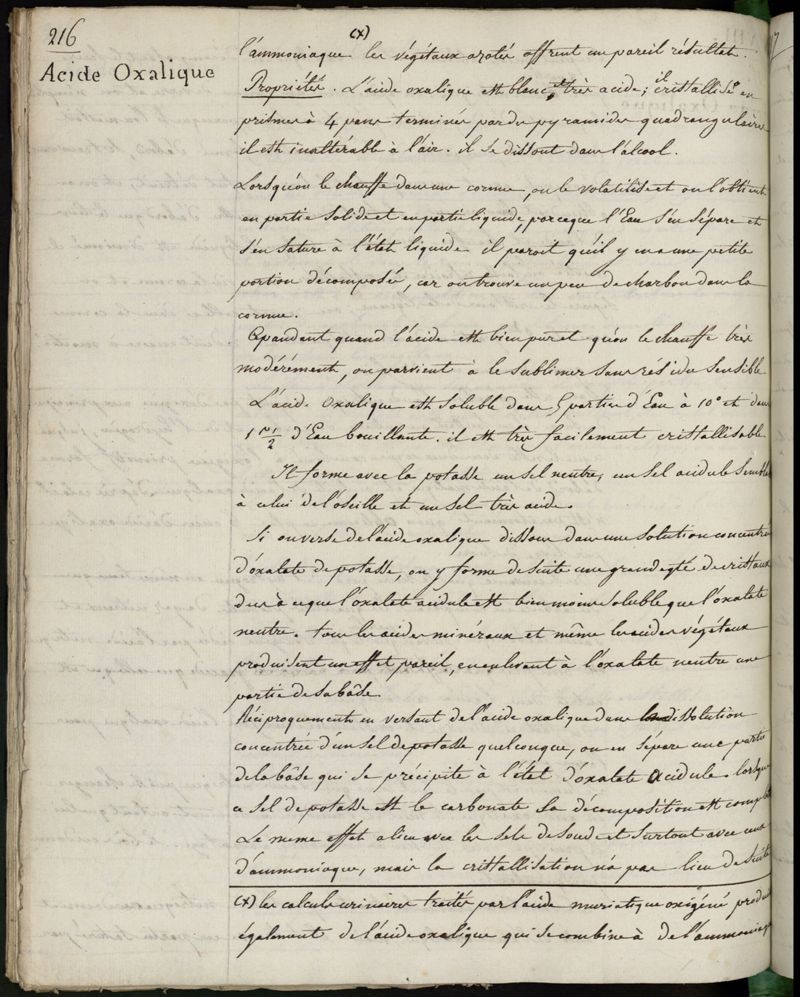 216
Acide Oxalique
(x)
l'ammoniaque les végétaux azotés offrent un pareil résultat.
Propriétés. L'acide oxalique est blanc, et très acide; il cristallise en
prismes à 4 pans terminés par des pyramides quadrangulaires
il est inaltérable à l'air. il se dissout dans l'alcool.
Lorsqu'on le chauffe dans une cornue, on le volatilise et on l'obtient
en partie solide et en partie liquide, parceque l'Eau s'en sépare et
s'en sature à l'état liquide il paroit qu'il y en a une petite
portion décomposée, car on trouve un peu de charbon dans la
cornue.
Cependant quand l'acide est bien pur et qu'on le chauffe très
modérément, on parvient à le sublimer sans résidu sensible
L'acide Oxalique est soluble dans 5 parties d'Eau à 10° et dans
1 1/2 d'Eau bouillante. il est très facilement cristallisable
Il forme avec la potasse un sel neutre, un sel acidule semblable
à celui de l'oseille et un sel très acide.
Si on verse de l'acide oxalique dissous dans une solution concentrée
d'oxalate de potasse, on y forme de suite une grande qté de cristaux
dus à ce que l'oxalate acidule est bien moins soluble que l'oxalate
neutre. tous les acides minéraux et même les acides végétaux
produisent un effet pareil, en enlevant à l'oxalate neutre une
partie de sa bâse
Réciproquement en versant de l'acide oxalique dans dissolution
concentrée d'un sel de potasse quelconque, on en sépare une partie
de la bâse qui se précipite à l'état d'oxalate acidule. lorsque
ce sel de potasse est le carbonate sa décomposition est complète
Le meme effet a lieu avec les sels de soude et surtout avec ceux
d'ammoniaque, mais la cristallisation n'a pas lieu de suite
(x) les calculs urinaires traités par l'acide muriatique oxigéné produi
également de l'acide oxalique qui se combine à de l'ammoniaque